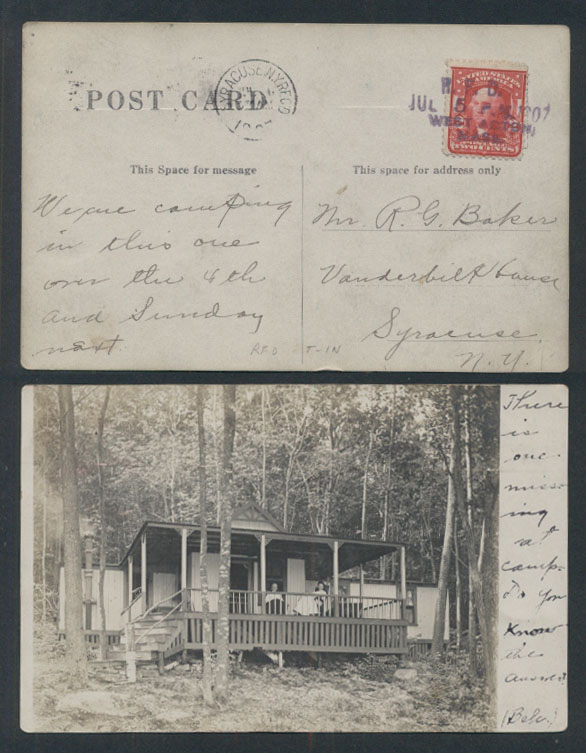 POST CARD
SYRACUSE, N.Y. REC'D
R. F. D.
JUL 5 P.M. 1907
WEST
MASS.
UNITED STATES OF AMERICA
TWO CENTS
This Space for message
This space for address only
We are camping
in this one
over the 4th
and Sunday
next
Mr. R. G. Baker
Vanderbilt House
Syracuse
N. Y.
RFD T-IN
There
is
one
miss-
ing
at
camp-
Do you
Know
the
answer